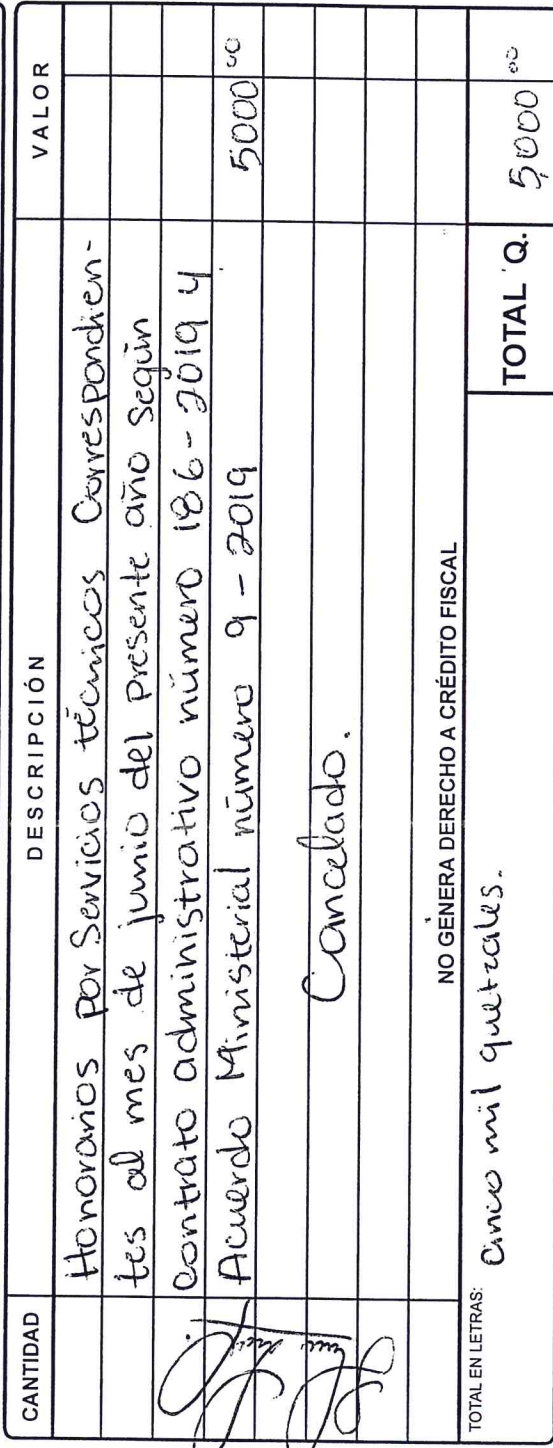 CANTIDAD DESCRIPCIÓN VALOR
Honorarios por Servicios técnicos Correspondien-
tes al mes de junio del presente año según
contrato administrativo número 186-2019 y
Acuerdo Ministerial número 9-2019. 5000 00
Cancelado.
NO GENERA DERECHO A CRÉDITO FISCAL
TOTAL EN LETRAS: Cinco mil quetzales. TOTAL Q. 5,000 00